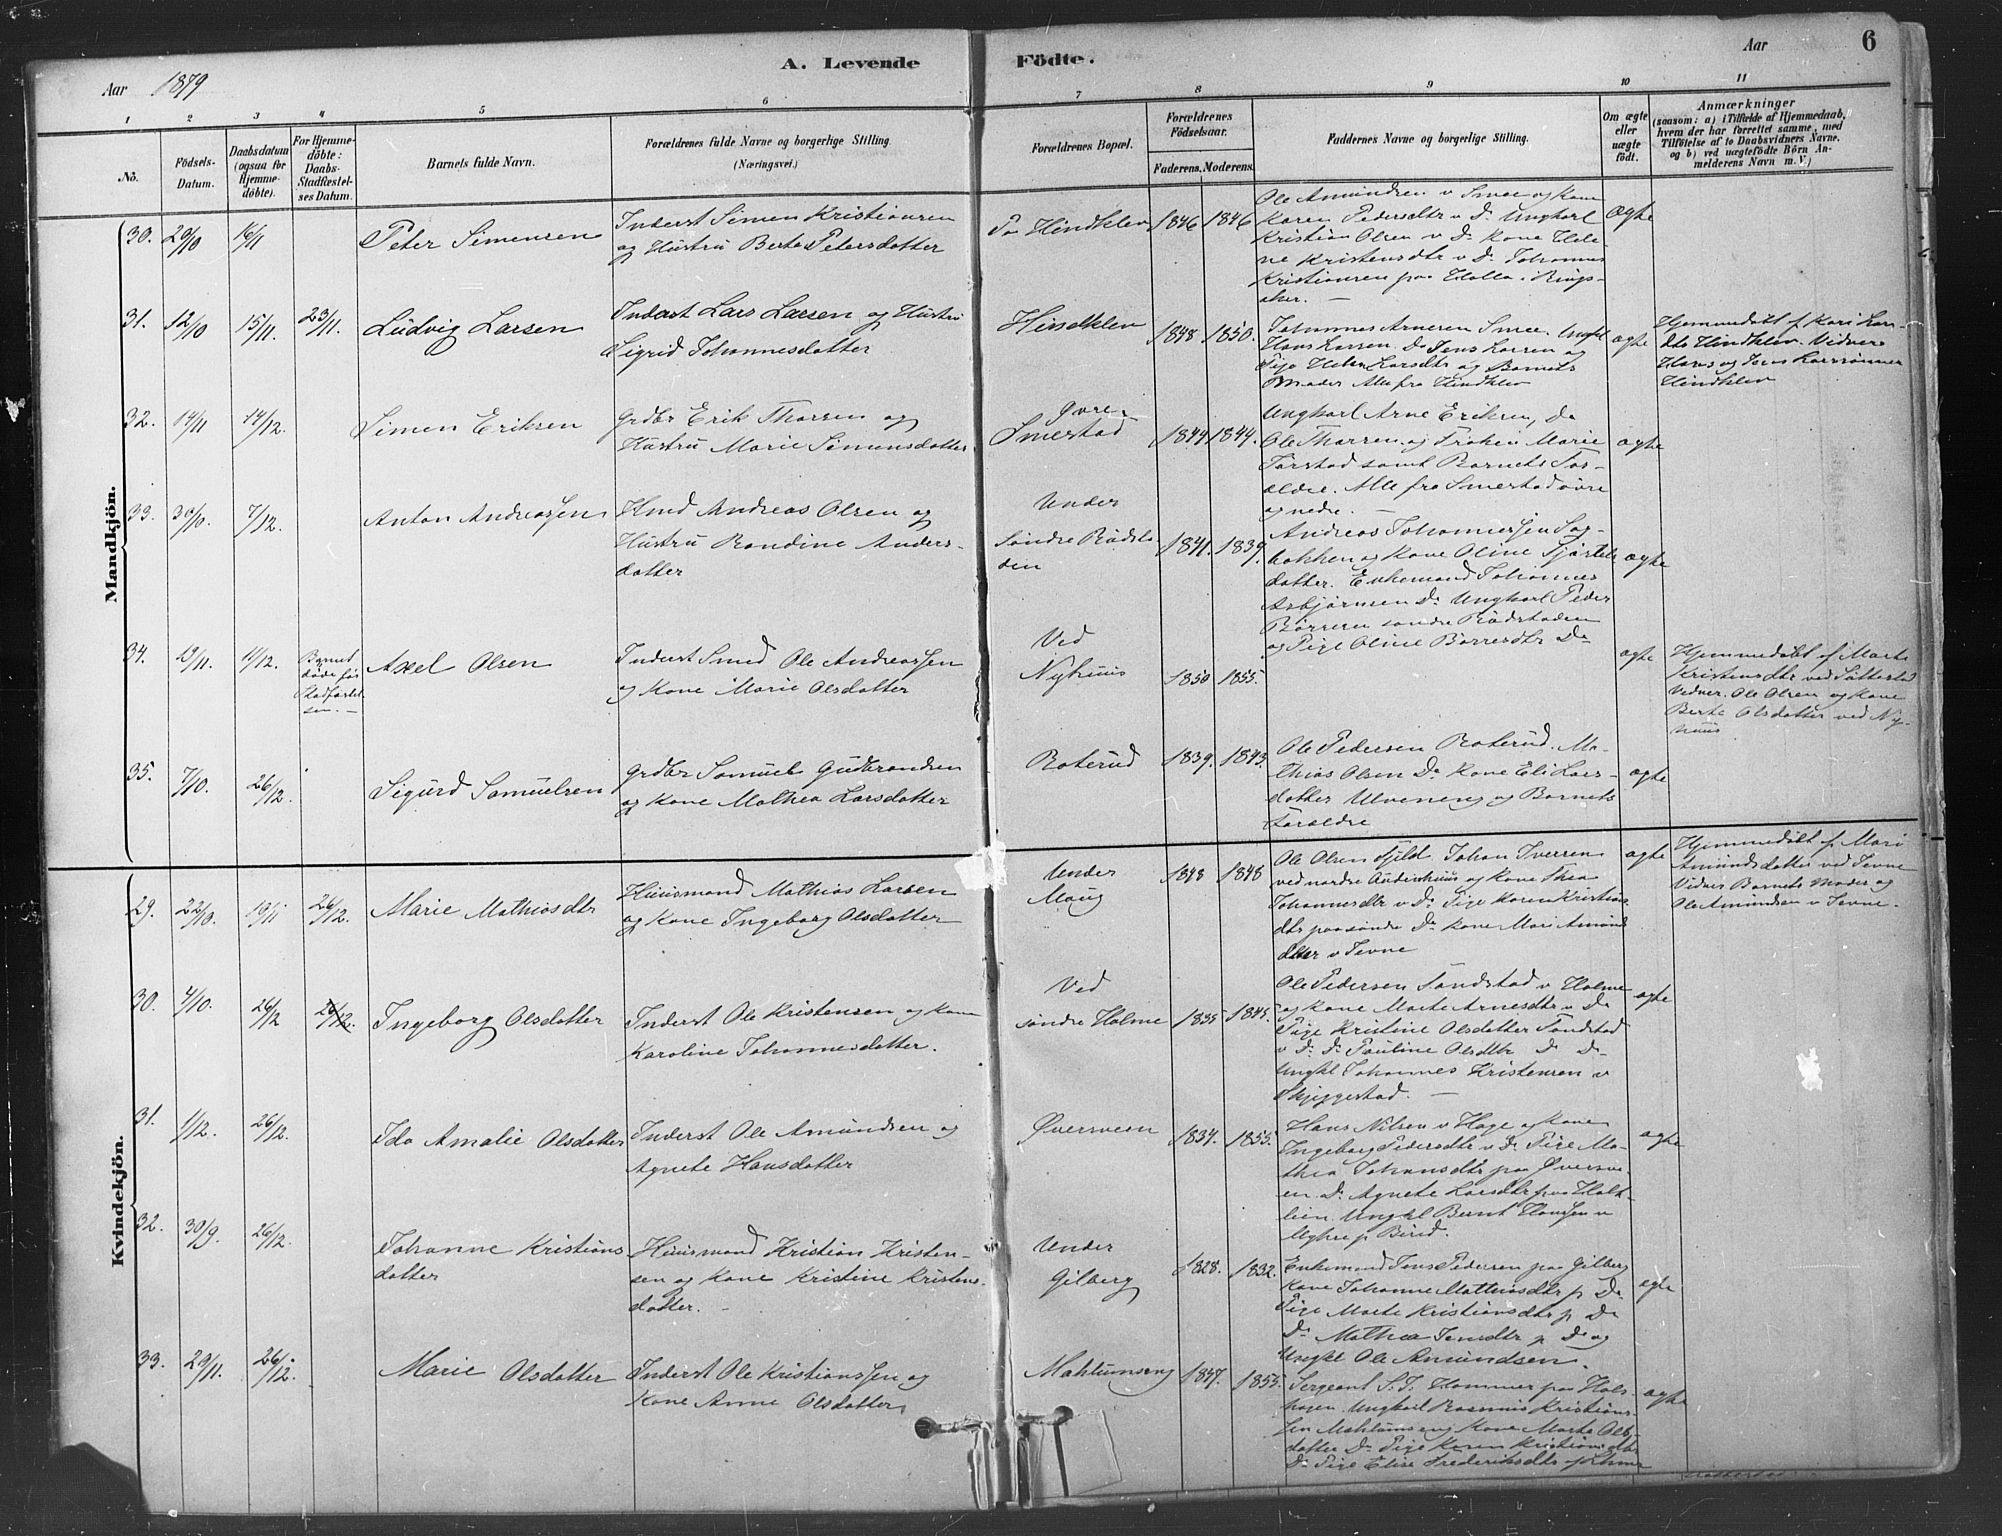 6
A. Levende Födte.
Aar 1879
Aar
1 2 3 4 5 6 7 8 9 10 11
No.
Födsels-
Datum.
Daabsdatum
(ogsaa for
Hjemme-
döbte).
For Hjemme-
döbte:
Daabs-
Stadfæstel-
ses Datum.
Barnets fulde Navn.
Forældrenes fulde Navne og borgerlige Stilling
(Næringsvei.)
Forældrenes Bopæl.
Forældrenes
Födselsaar.
Faderens. Moderens.
Faddernes Navne og borgerlige Stilling.
Om ægte
eller
uægte
födt.
Anmærkninger
(saasom: a) i Tilfælde af Hjemmedaab,
hvem der har forrettet samme, med
Tilföielse af to Daabsvidners Navne.
og b) ved uægtefödte Börn An-
melderens Navn m. V.)
Mandkjön.
30. 29/10 16/11
Peter Simensen
Inderst Simen Kristiansen
og Hustru Berte Petersdatter
Paa Hindklev
1846 1846
Ole Amundsen v Smee og Kone
Karen Pedersdtr v Do Ungkarl
Kristian Olsen v Do Kone Hele-
ne Kristensdtr v Do Johannes
Kristiansen paa Holla i Rings-
aker. —
ægte
31. 12/10 15/11. 23/11.
Ludvig Larsen
Inderst Lars Larsen og Hustru
Sigrid Johannesdatter
Hindklev
1848 1850.
Johannes Arnesen Smee. Ungkl
Hans Larsen. Do Jens Larsen og
Pige Helene Larsdtr og Barnets
Moder Alle fra Hindklev
ægte
Hjemmedöbt af Kari Lars-
dtr Hindklev. Vidner
Hans og Jens Larssönner
Hindklev
32. 14/11 14/12.
Simen Eriksen
Grdbr Erik Thorsen og
Hustru Marie Simensdatter
Øvre
Smestad
1844 1844.
Ungkarl Arne Eriksen, Do
Ole Thorsen og Fröken Marie
Forstad samt Barnets For-
ældre. Alle fra Smestad övre
og nedre. —
ægte
33. 30/10. 7/12.
Anton Andreassen
Hmd Andreas Olsen og
Hustru Randine Anders-
datter
Under
söndre Rödsto-
den
1841. 1839.
Andreas Johannessen Sag-
bakken og Kone Oline
datter. Enkemand Johannes
Asbjörnsen Do Ungkarl Peder
Börresen söndre Rödstoden
og Pige Oline Börresdtr Do
ægte
34. 29/11. 11/12.
Barnet
döde för
Stadfæstel-
sen. —
Axel Olsen
Inderst Smed Ole Andreassen
og Kone Marie Olsdatter
Ved
Nyhuus
1850 1855.
ægte
Hjemmedöbt af Marte
Kristensdtr ved Sötterstad
Vidner. Ole Olsen og Kone
Berte Olsdatter ved Ny-
huus
35. 7/10. 26/12.
Sigurd Samuelsen
Grdbr Samuel Gudbrandsen
og Kone Mathea Larsdatter
Roterud
1839. 1843.
Ole Pedersen Roterud. Ma-
thias Olsen Do Kone Eli Lars-
datter Ulveneng og Barnets
Forældre
ægte
Kvindekjön.
29. 22/10. 19/11 26/12.
Marie Mathiasdtr
Huusmand Mathias Larsen
og Kone Ingeborg Olsdatter
Under
Maug
1848 1848
Ole Olsen Fjeld Johan Iversen
ved nordre Audenhuus og Kone Thea
Johannesdtr v Do Pige Karen Kristians-
dtr paa söndre Do Kone Mari Amunds-
datter v Tevne
ægte
Hjemmedöbt af Mari
Amundsdatter ved Tevne
Vidner Barnets Moder og
Ole Amundsen v Tevne.
30. 4/10. 26/12 26/12.
Ingeborg Olsdatter
Inderst Ole Kristensen og Kone
Karoline Johannesdatter.
Ved
söndre Holme
1835 1845.
Ole Pedersen Sandstad v Holme
og Kone Marte Arnesdtr v Do
Pige Kristine Olsdatter Sandstad
v Do Do Pauline Olsdtr Do Do
Ungkl Johannes Kristensen v
Skjeggestad. —
ægte
31. 1/12. 26/12.
Ida Amalie Olsdatter
Inderst Ole Amundsen og
Agnete Hansdatter
Øversveen
1834. 1855.
Hans Nilsen v Hage og Kone
Ingeborg Pedersdtr v Do Pige Ma-
thea Johansdtr paa Øversve-
en Do Agnete Larsdtr paa Holt-
lien. Ungkl Bernt Hansen v
Myhre p. Birid.
ægte
32. 30/9. 26/12.
Johanne Kristians-
datter
Huusmand Kristian Kristen-
sen og Kone Kristine Kristens-
datter. —
Under
Gilberg
1828. 1832.
Enkemand Jens Pedersen paa Gilberg
Kone Johanne Mathiasdtr p. Do
Pige Marte Kristiansdtr p. Do
Do Mathea Jensdtr p Do og
Ungkl Ole Amundsen.
ægte
33. 29/11. 26/12.
Marie Olsdatter
Inderst Ole Kristianssen og
Kone Anne Olsdatter
Mahlumseng
1847. 1855.
Sergeant S. J. Hammer paa Hols-
hagen. Ungkarl Rasmus Kristians-
sen Mahlumseng Kone Marte Ols-
datter Do Pige Karen Kristiansdtr
Do Pige Elise Frederiksdtr
ægte